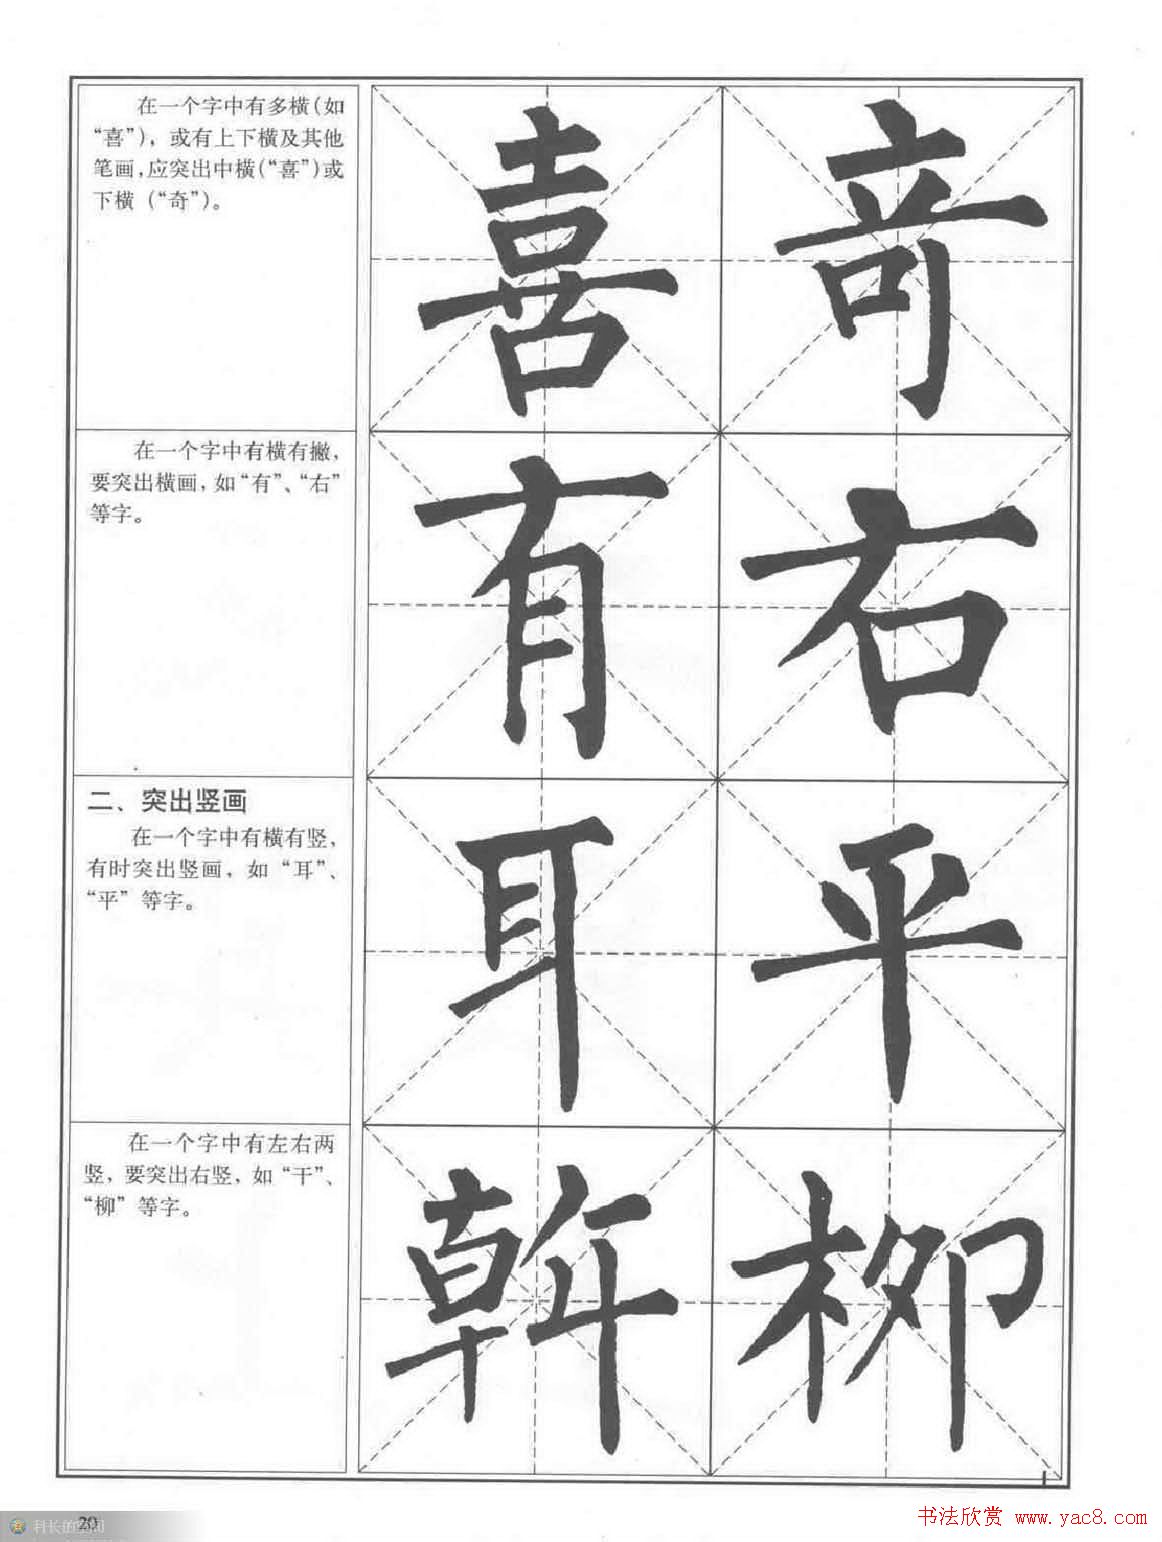 在一个字中有多横(如
“喜”)，或有上下横及其他
笔画,应突出中横(“喜”)或
下横（“奇”)。
喜 奇
在一个字中有横有撇，
要突出横画，如“有”、“右”
等字。
有 右
二、突出竖画
在一个字中有横有竖，
有时突出竖画，如“耳”、
“平”等字。
耳 平
在一个字中有左右两
竖，要突出右竖，如“干”、
“柳”等字。
柳
20
科长的空间
书法欣赏 www.yac8.com